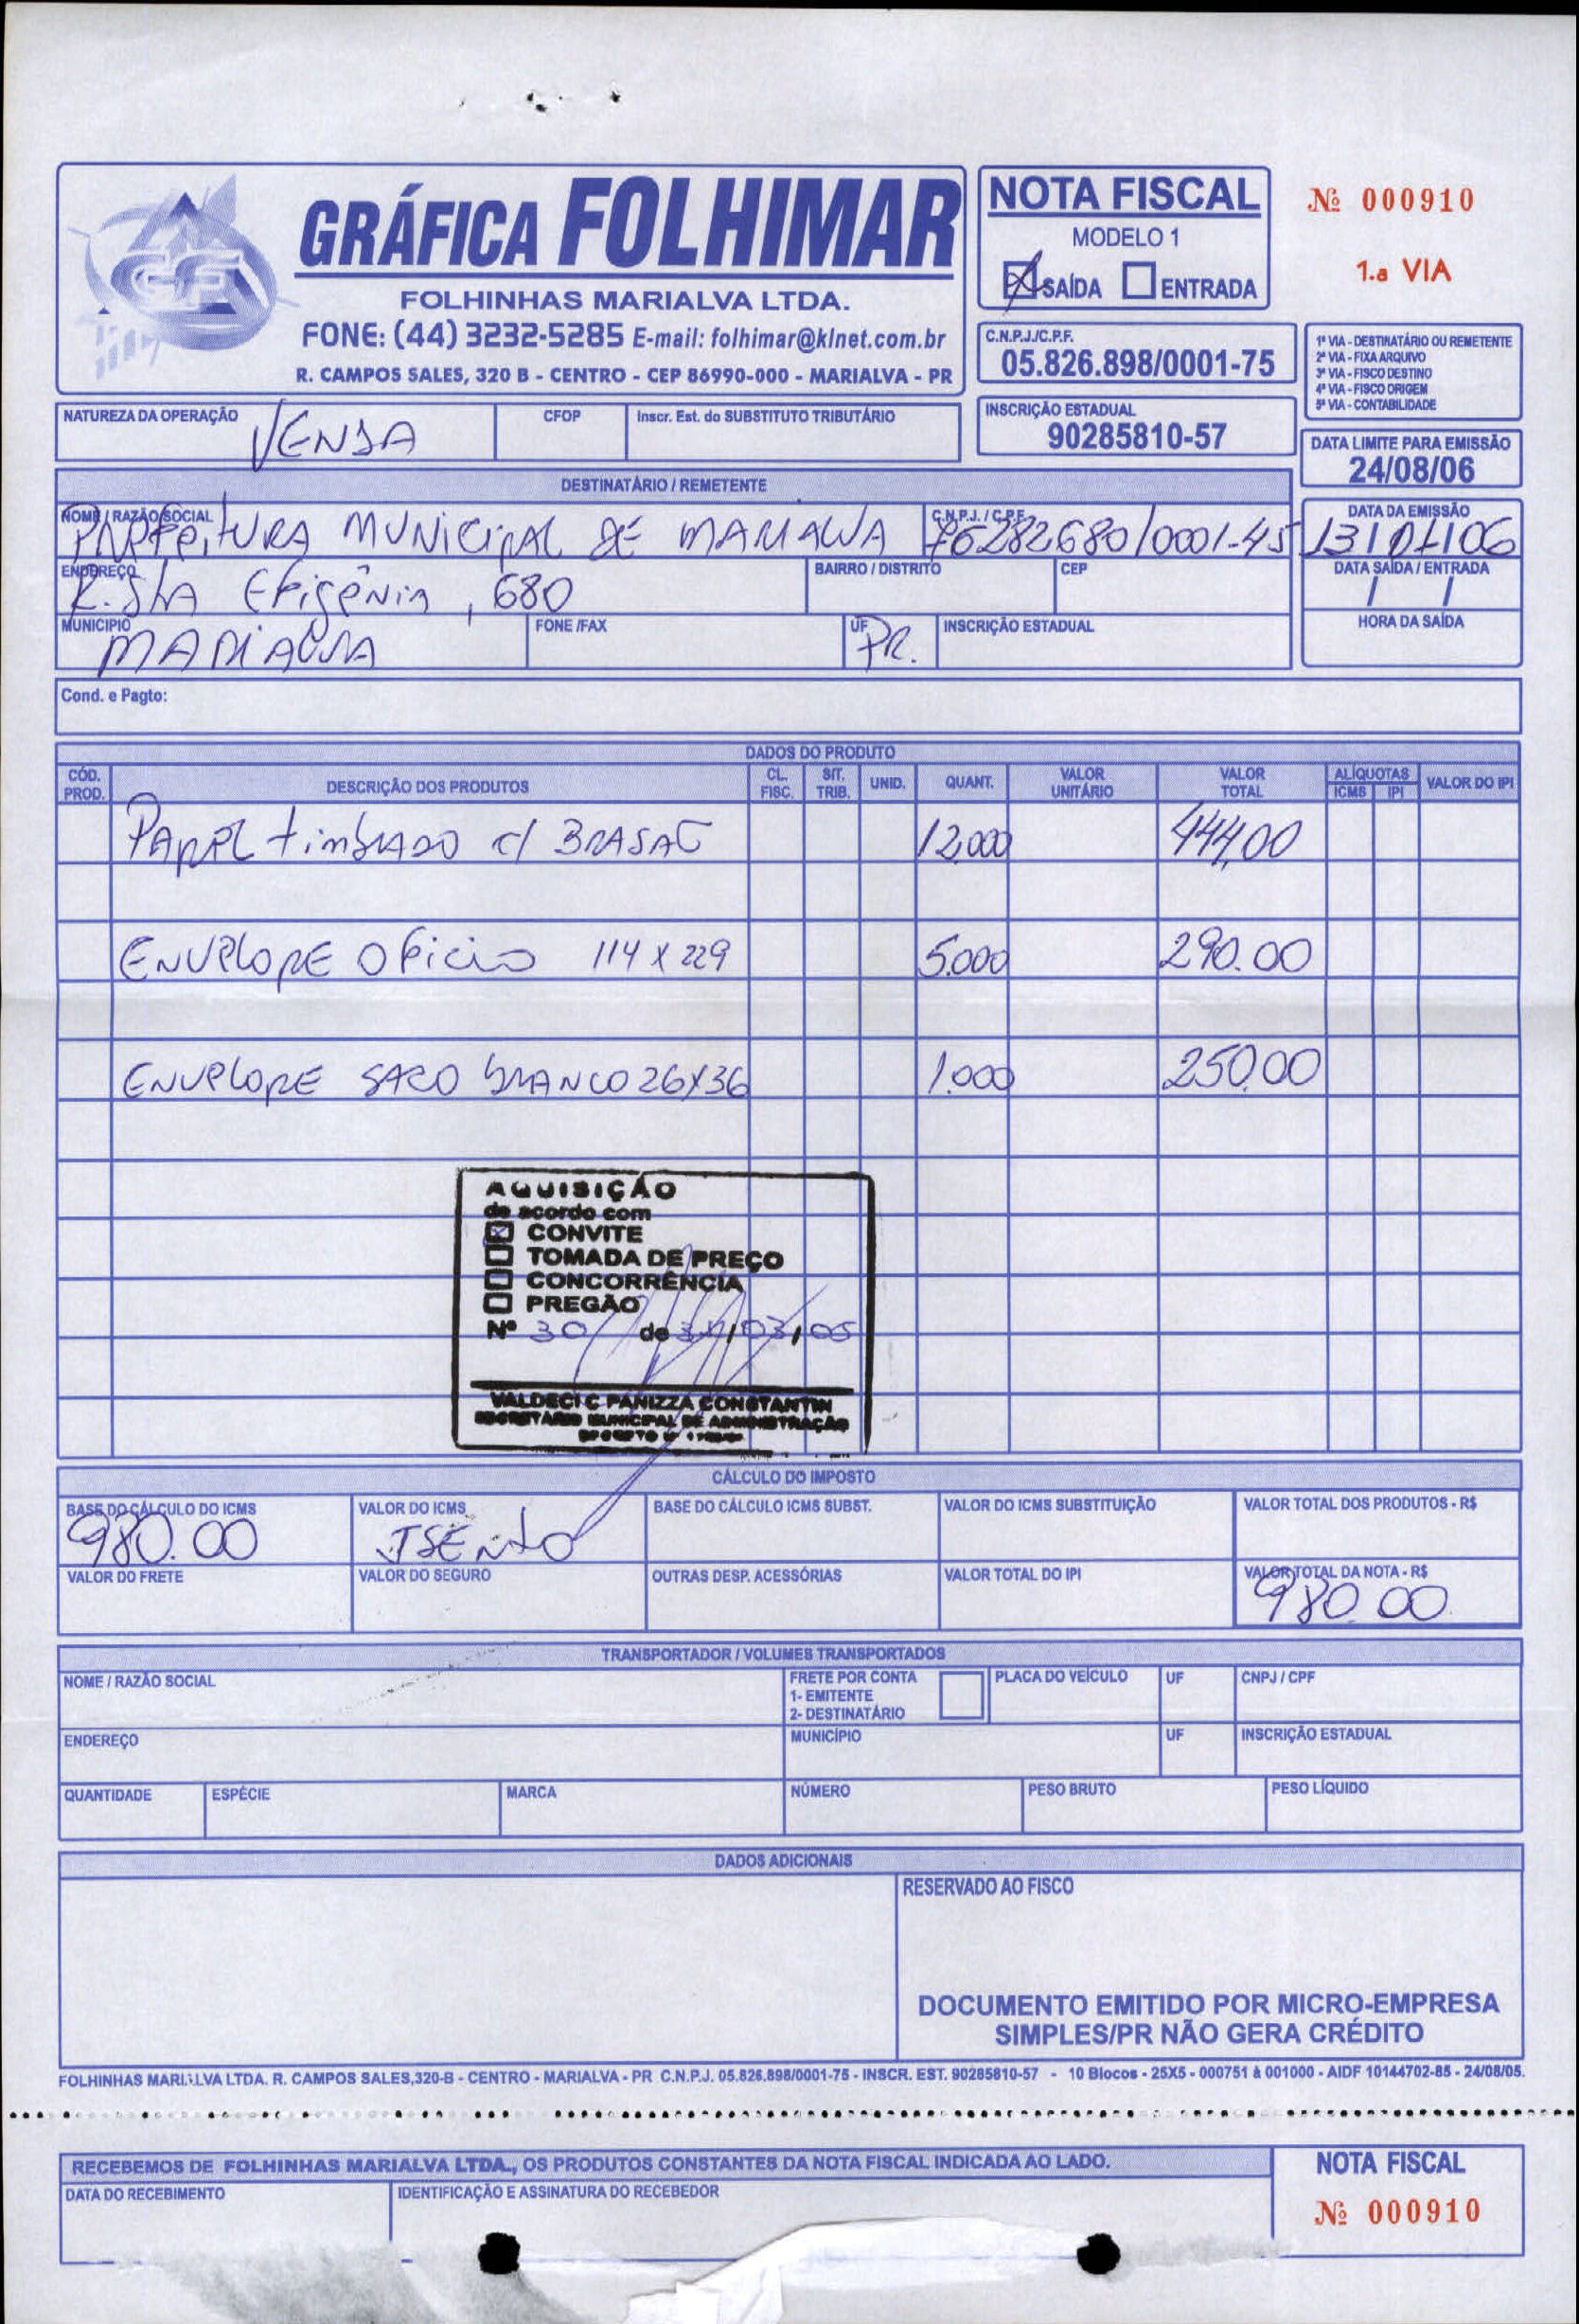 GRÁFICA FOLHIMAR
FOLHINHAS MARIALVA LTDA.
FONE: (44) 3232-5285 E-mail: folhimar@klnet.com.br
R. CAMPOS SALES, 320 B - CENTRO - CEP 86990-000 - MARIALVA - PR
NOTA FISCAL
MODELO 1
SAÍDA ENTRADA
Nº 000910
1.a VIA
C.N.P.J./C.P.F.
05.826.898/0001-75
1ª VIA - DESTINATÁRIO OU REMETENTE
2ª VIA - FIXA ARQUIVO
3ª VIA - FISCO DESTINO
4ª VIA - FISCO ORIGEM
5ª VIA - CONTABILIDADE
NATUREZA DA OPERAÇÃO VENDA
CFOP
Inscr. Est. do SUBSTITUTO TRIBUTÁRIO
INSCRIÇÃO ESTADUAL
90285810-57
DATA LIMITE PARA EMISSÃO
24/08/06
DESTINATÁRIO / REMETENTE
NOME / RAZÃO SOCIAL
PREFEITURA MUNICIPAL DE MARIALVA
C.N.P.J. / C.P.F.
76282680/0001-45
DATA DA EMISSÃO
13/01/06
ENDEREÇO
R. StA EFigênia, 680
BAIRRO / DISTRITO
CEP
DATA SAÍDA / ENTRADA
/ /
MUNICIPIO
MARIALVA
FONE /FAX
UF
PR.
INSCRIÇÃO ESTADUAL
HORA DA SAÍDA
Cond. e Pagto:
DADOS DO PRODUTO
CÓD. PROD.
DESCRIÇÃO DOS PRODUTOS
CL. FISC.
SIT. TRIB.
UNID.
QUANT.
VALOR UNITÁRIO
VALOR TOTAL
ALÍQUOTAS
ICMS IPI
VALOR DO IPI
PAPEL timbrado c/ BRASAO 12,000 444,00
ENVELOPE OFicio 114 X 229 5.000 290.00
ENVELOPE SACO BRANCO 26X36 1.000 250,00
AQUISIÇÃO
de acordo com
CONVITE
TOMADA DE PREÇO
CONCORRÊNCIA
PREGÃO
Nº 30 de 31/03/05
VALDECI C PANIZZA CONSTANTIN
SECRETÁRIO MUNICIPAL DE ADMINISTRAÇÃO
CÁLCULO DO IMPOSTO
BASE DO CÁLCULO DO ICMS
980.00
VALOR DO ICMS
ISENTO
BASE DO CÁLCULO ICMS SUBST.
VALOR DO ICMS SUBSTITUIÇÃO
VALOR TOTAL DOS PRODUTOS - R$
VALOR DO FRETE
VALOR DO SEGURO
OUTRAS DESP. ACESSÓRIAS
VALOR TOTAL DO IPI
VALOR TOTAL DA NOTA - R$
980.00
TRANSPORTADOR / VOLUMES TRANSPORTADOS
NOME / RAZÃO SOCIAL
FRETE POR CONTA
1- EMITENTE
2- DESTINATÁRIO
PLACA DO VEÍCULO
UF
CNPJ / CPF
ENDEREÇO
MUNICÍPIO
UF
INSCRIÇÃO ESTADUAL
QUANTIDADE
ESPÉCIE
MARCA
NÚMERO
PESO BRUTO
PESO LÍQUIDO
DADOS ADICIONAIS
RESERVADO AO FISCO
DOCUMENTO EMITIDO POR MICRO-EMPRESA
SIMPLES/PR NÃO GERA CRÉDITO
FOLHINHAS MARIALVA LTDA. R. CAMPOS SALES,320-B - CENTRO - MARIALVA - PR C.N.P.J. 05.826.898/0001-75 - INSCR. EST. 90285810-57 - 10 Blocos - 25X5 - 000751 à 001000 - AIDF 10144702-85 - 24/08/05.
RECEBEMOS DE FOLHINHAS MARIALVA LTDA., OS PRODUTOS CONSTANTES DA NOTA FISCAL INDICADA AO LADO.
DATA DO RECEBIMENTO
IDENTIFICAÇÃO E ASSINATURA DO RECEBEDOR
NOTA FISCAL
Nº 000910